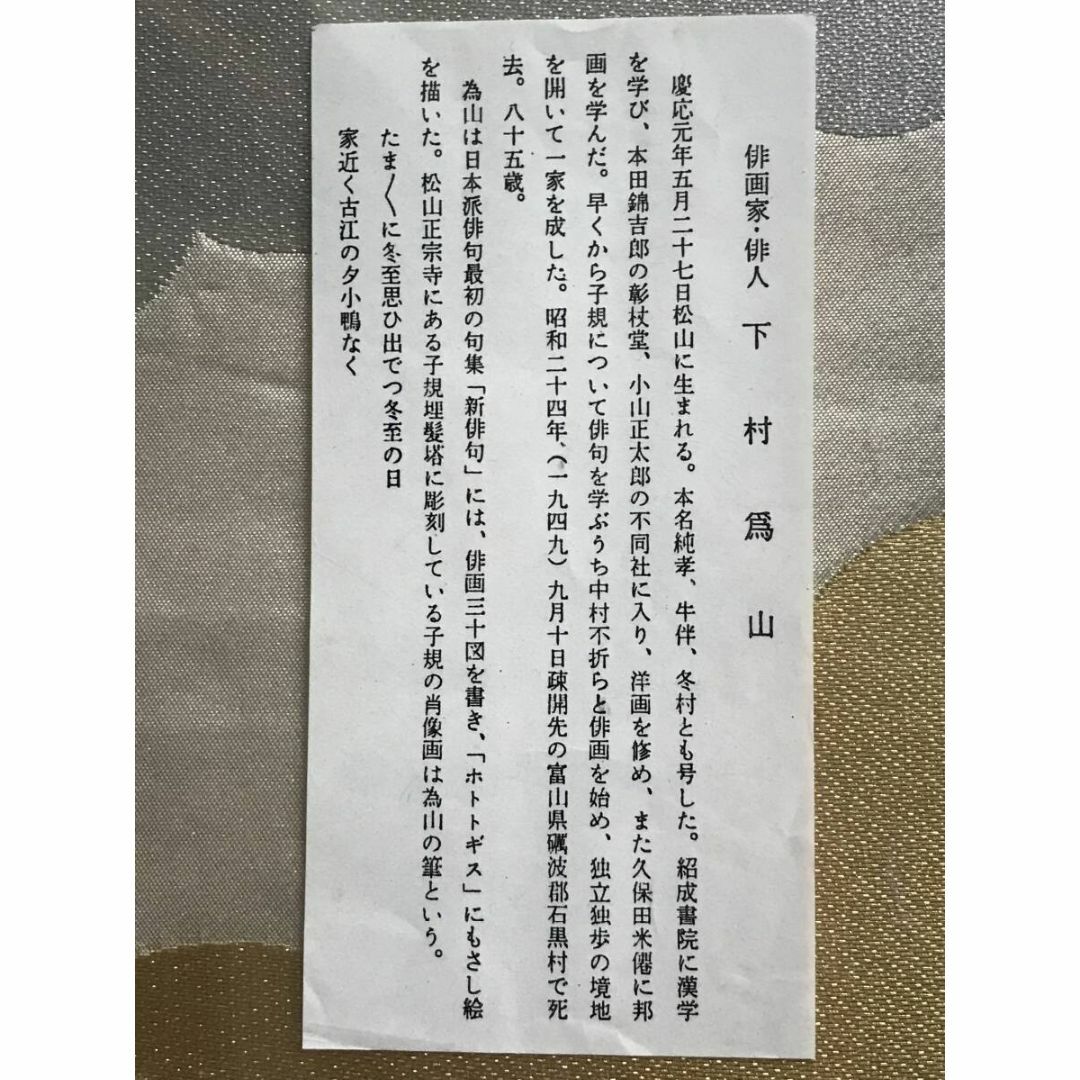 俳画家・俳人 下村爲山
慶応元年五月二十七日松山に生まれる。本名純孝、牛伴、冬村とも号した。紹成書院に漢学
を学び、本田錦吉郎の彰杖堂、小山正太郎の不同社に入り、洋画を修め、また久保田米僊に邦
画を学んだ。早くから子規について俳句を学ぶうち中村不折らと俳画を始め、独立独歩の境地
を開いて一家を成した。昭和二十四年、(一九四九)九月十日疎開先の富山県礪波郡石黒村で死
去。八十五歳。
為山は日本派俳句最初の句集「新俳句」には、俳画三十図を書き、「ホトトギス」にもさし絵
を描いた。松山正宗寺にある子規埋髪塔に彫刻している子規の肖像画は為山の筆という。
たま〳〵に冬至思ひ出でつ冬至の日
家近く古江の夕小鴨なく